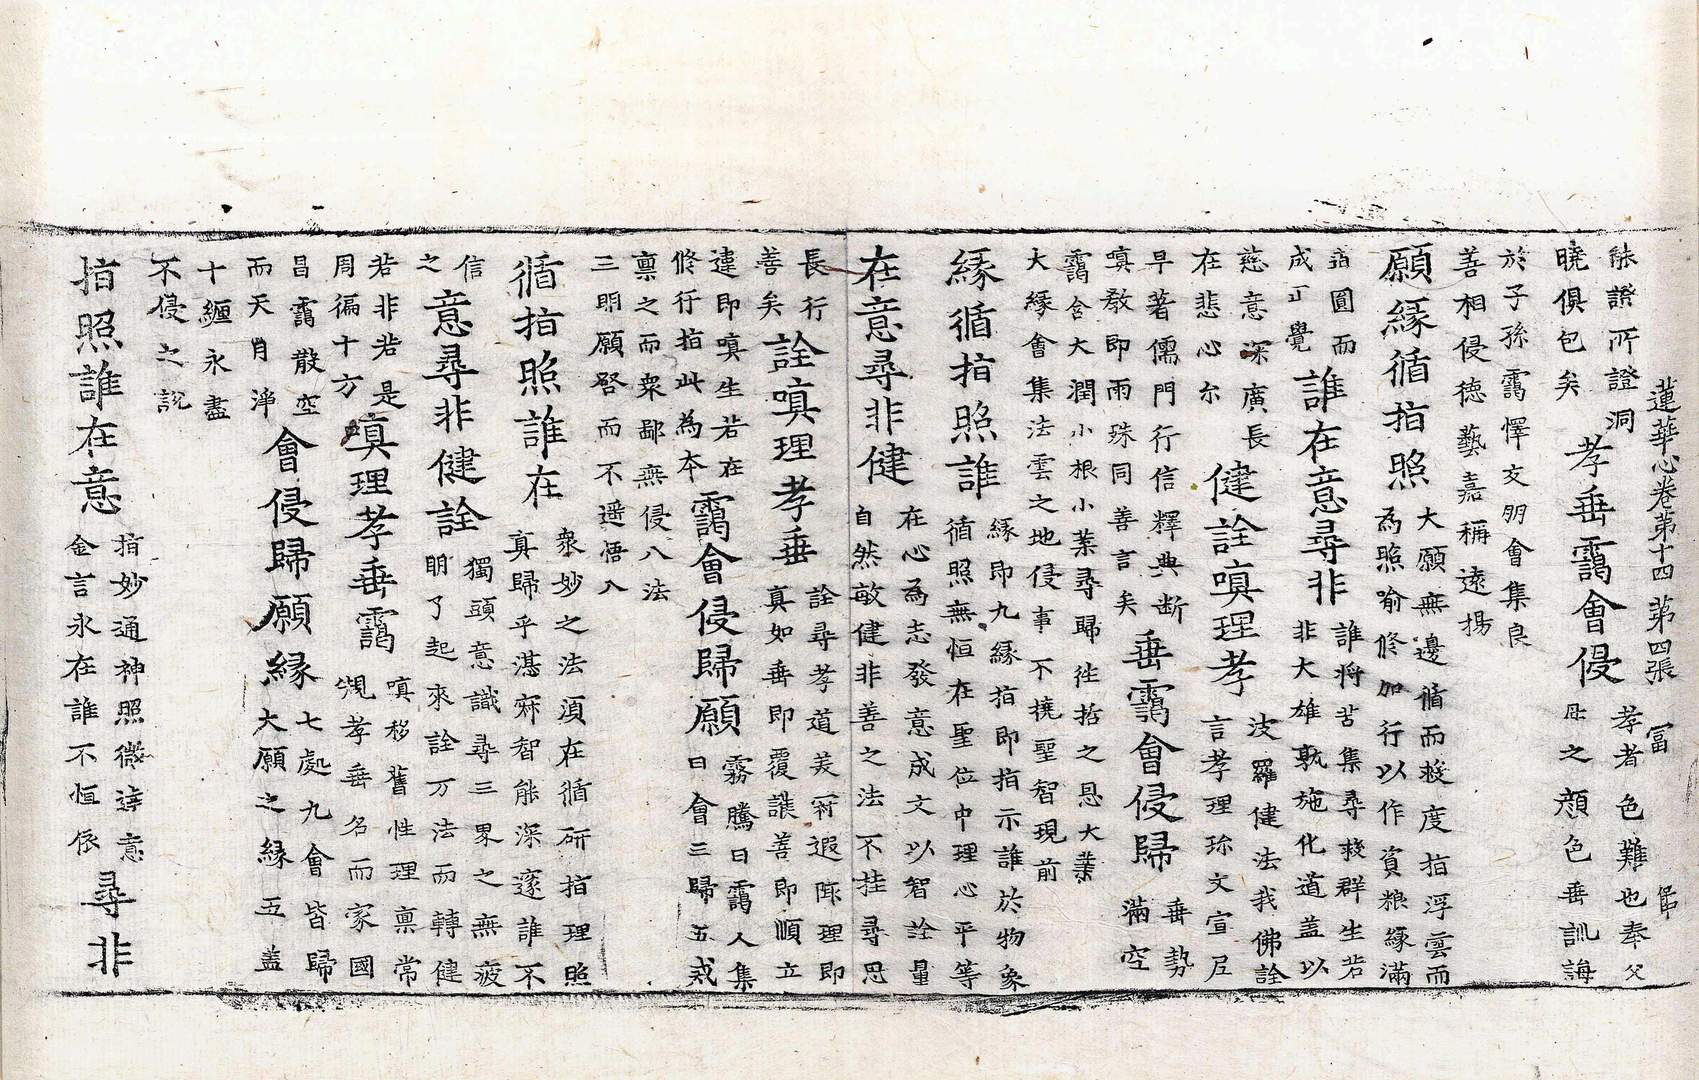 蓮華心卷第十四 第四張 冨
能證所證洞
曉俱包矣
孝垂靄會侵
孝者色難也奉父
母之顏色垂訓誨
於子孫靄懌友朋會集良
善相侵德藝嘉稱遠揚
願緣循指照
大願無邊循而捘度指浮雲而
為照喻修加行以作資粮緣滿
圓而
成正覺
誰在意尋非
誰將苦集尋捘群生若
非大雄孰施化道盖以
慈意深廣長
在悲心尒
健詮嗔理孝
波羅健法我佛詮
言孝理珎文宣尼
早著儒門行信釋典断
嗔教即雨殊同善言矣
垂靄會侵歸
垂勢
滿空
靄含大潤小根小業尋歸往哲之恳大業
大緣會集法雲之地侵事不撓聖智現前
緣循指照誰
緣即九緣指即指示誰於物象
循照無恒在聖位中理心平等
在意尋非健
在心為志發意成文以智詮量
自然敏健非善之法不挂尋思
長行
善矣
詮嗔理孝垂
詮尋孝道美遐陬理即
真如垂即覆護善即順立
違即嗔生若在
修行指此為本
靄會侵歸願
霧騰曰靄人集
曰會三歸五戒
稟之而衆鄙無侵八法
三明願啓而不遥悟入
循指照誰在
衆妙之法湏在循研指理照
真歸乎湛寂智能深邃誰不
信
之
意尋非健詮
獨頭意識尋三界之無疲
明了起來詮万法而轉健
若非若是
周徧十方
嗔理孝垂靄
嗔移舊性理稟常
規孝垂名而家國
昌靄散空
而天月淨
會侵歸願緣
七處九會皆歸
大願之緣五盖
十纏永盡
不侵之說
指照誰在意
指妙通神照微達意
金言永在誰不恒依
尋非